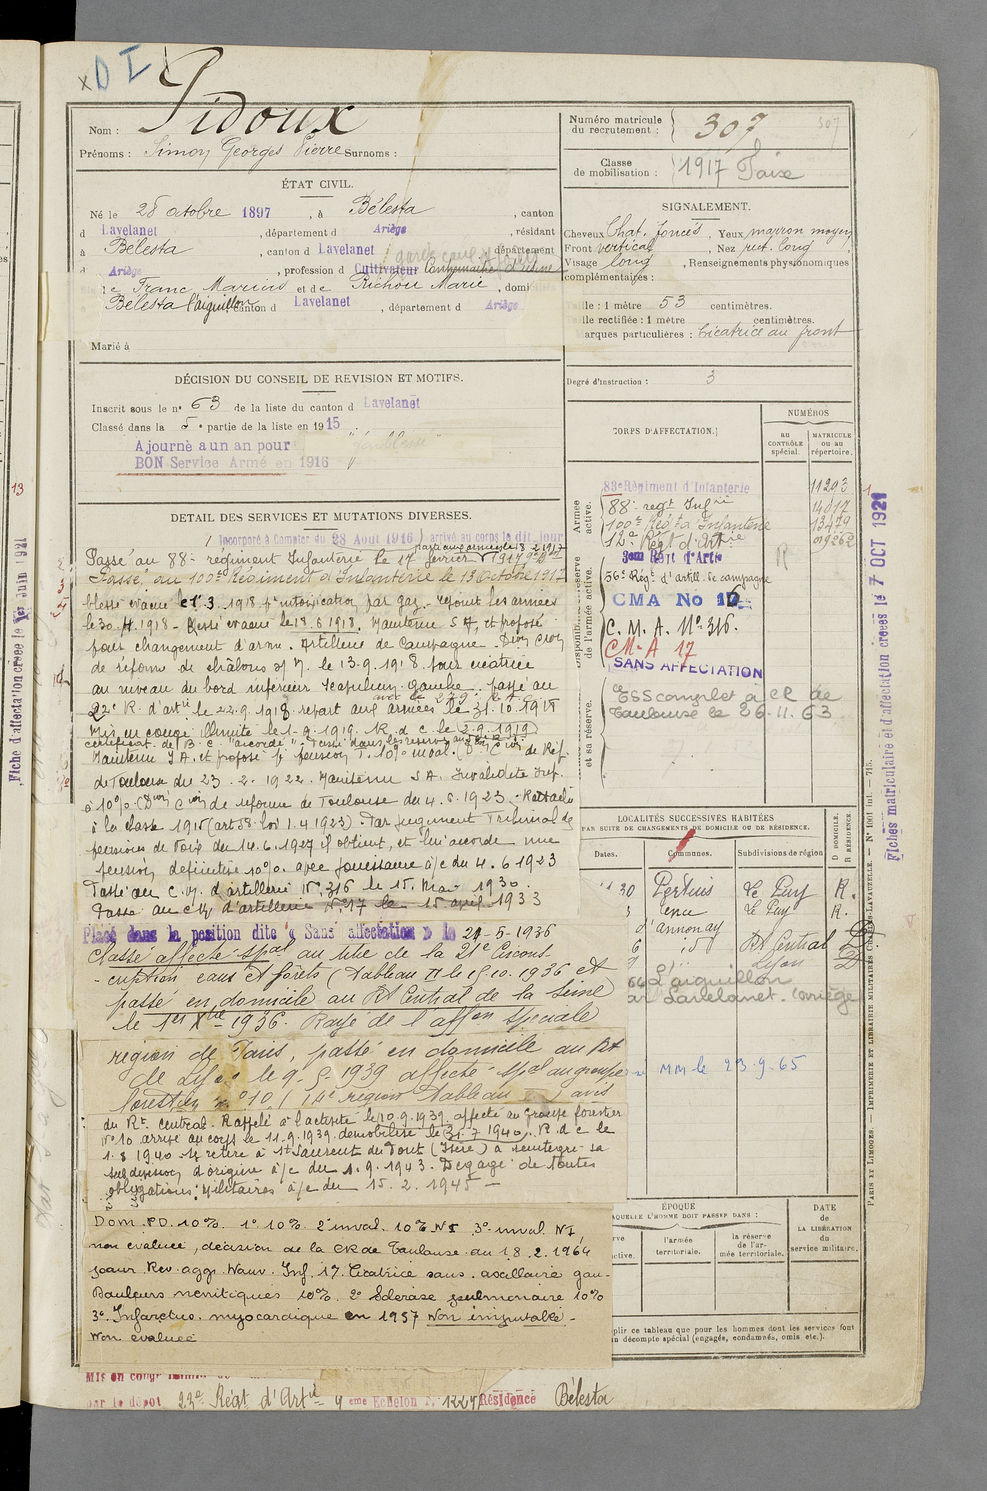 x D I
Nom : Pidoux
Prénoms : Simon Georges Pierre Surnoms :
Numéro matricule du recrutement : 307
307
Classe de mobilisation : 1917
ÉTAT CIVIL.
Né le 28 octobre 1897, à Bélesta, canton
d Lavelanet, département d Ariège, résidant
à Bélesta, canton d Lavelanet, département
d Ariège, profession d Cultivateur
de Franc Marius et de Richou Marie, domi
Bélesta l'aiguillon canton d Lavelanet, département d Ariège
Marié à
SIGNALEMENT.
Cheveux Chat. foncés, Yeux marron moyen,
Front vertical, Nez rect. long
Visage long, Renseignements physionomiques
complémentaires :
Taille : 1 mètre 53 centimètres.
Taille rectifiée : 1 mètre centimètres.
arques particulières : Cicatrice au front
Degré d'instruction : 3
DÉCISION DU CONSEIL DE REVISION ET MOTIFS.
Inscrit sous le n° 63 de la liste du canton d Lavelanet
Classé dans la 5e partie de la liste en 1915
Ajourné à un an pour
BON Service Armé en 1916
DÉTAIL DES SERVICES ET MUTATIONS DIVERSES.
Incorporé à Compter du 28 Août 1916 arrivé au corps le dit jour
Passé au 88e régiment Infanterie le 17 février 1917
Passé au 100e Régiment d'Infanterie le 13 Octobre 1917
blessé évacué le 1.3.1918 pr intoxication par gaz. rejoint les armées
le 30.4.1918. Blessé évacué le 18.6.1918. Maintenu S A, et proposé
pour changement d'arme. Artillerie de Campagne. Don Cion
de réforme de Châlons s/ M. le 13.9.1918 pour cicatrice
au niveau du bord inférieur scapulum gauche. passé au
22e R. d'artie le 22.9.1918. repart aux armées le 31.10.1918
Mis en congé illimité le 1.9.1919. R. d. c. le 2.9.1919
certificat de B. C. "accordé"
Maintenu S A. et proposé pr pension T. 10% de Réf.
de Toulouse du 23.2.1922. Maintenu S A. Invalidité inf.
à 10%. (Don Cion de réforme de Toulouse du 4.6.1923. Rattaché
à la classe 1915 (art 58. loi 1.4.1923). Par jugement Tribunal de
pensions de Foix du 14.6.1927 il obtient, et lui accorde une
pension définitive 10%. avec jouissance à/c du 4.6.1923
Passé au C.M. d'artillerie N° 316 le 15. Mai 1930.
Passé au C M d'artillerie N° 317 le 15 avril 1933
Placé dans la position dite « Sans affectation » le 21-5-1936
Classé affecté spal au titre de la 21e Circons-
-cription eaux et forêts (Tableau II le 15.10.1936 et
passé en domicile au Rt Central de la Seine
le 1er Xbre 1936. Rayé de l'affon spéciale
région de Paris, passé en domicile au Rt
de Lyon le 9-5-1939 affecté spcl au groupe
forestier n° 10 (14e région Tableau avis
du Rt. Central. Rappelé à l'activité le 10.9.1939 affecté au Groupe forestier
N° 10 arrivé au corps le 11.9.1939. démobilisé le 31.7.1940. R. d. c le
1.8 1940 se retire à St Laurent du Pont (Isère) a réintégré sa
subdivision d'origine à/c du 1.9.1943. Dégagé de toutes
obligations Militaires à/c du 15.2.1945 —
Dom. PD. 10%. 1° 10% 2° inval. 10% NI 3° inval NI,
non évaluée, décision de la CR de Toulouse du 18.2.1964
pour Rev. aggr Nouv. Inf. 1° Cicatrice sous-axillaire gau-
Douleurs névritiques 10%. 2° Sclérose pulmonaire 10%
3° Infarctus myocardique en 1957 Non imputable -
Non évaluée
par le dépôt 23e Régt d'Artie 4 eme Echelon N° 1227 Résidence Bélesta
CORPS D'AFFECTATION.
NUMÉROS
AU CONTRÔLE spécial.
MATRICULE OU AU répertoire.
Armée active.
83e Régiment d'Infanterie 11293
88e regt Infrie 14017
100e Régt d'Infanterie 13479
12e Régt d'Artie 019262
R
56e Régt d'artill. de campagne
CMA No 16
C. M. A. N° 316.
C. M. A 17
SANS AFFECTATION
ESS complet à CR de
Toulouse le 26.11.63
de l'armée active.
et sa réserve.
LOCALITÉS SUCCESSIVES HABITÉES
PAR SUITE DE CHANGEMENTS DE DOMICILE OU DE RÉSIDENCE.
Dates. Communes. Subdivisions de région
D. DOMICILE. R. RÉSIDENCE.
30 Pertuis Le Puy R.
Le Puy R.
d'annonay
Rt Central D
Lyon D
L'aiguillon
par Lavelanet. Ariège
MM le 23.9.65
ÉPOQUE
LAQUELLE L'HOMME DOIT PASSER DANS :
l'armée territoriale.
la réserve de l'armée territoriale.
DATE de LA LIBÉRATION du service militaire.
plir ce tableau que pour les hommes dont les services font
un décompte spécial (engagés, condamnés, omis, etc.).
Fiche d'affectation créée le 1er Juin 1921
13
Fiches matriculaire et d'affectation créées le 7 OCT 1921
PARIS ET LIMOGES. — IMPRIMERIE ET LIBRAIRIE MILITAIRES CHARLES-LAVAUZELLE. — N° 1001 int. — 715.